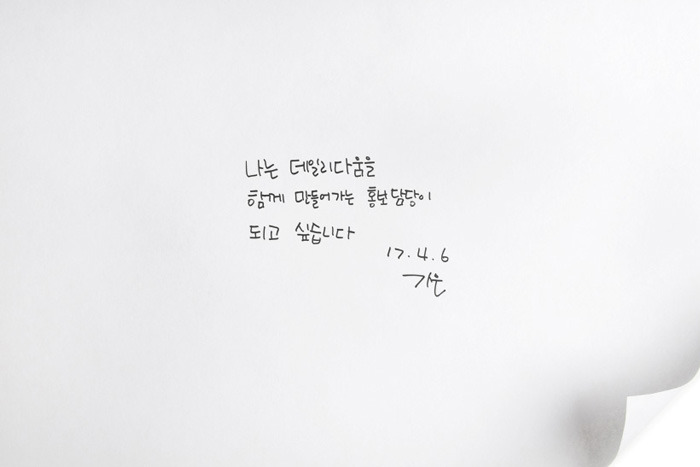 나는 데일리다움을
함께 만들어가는 홍보담당이
되고 싶습니다
17.4.6
가은